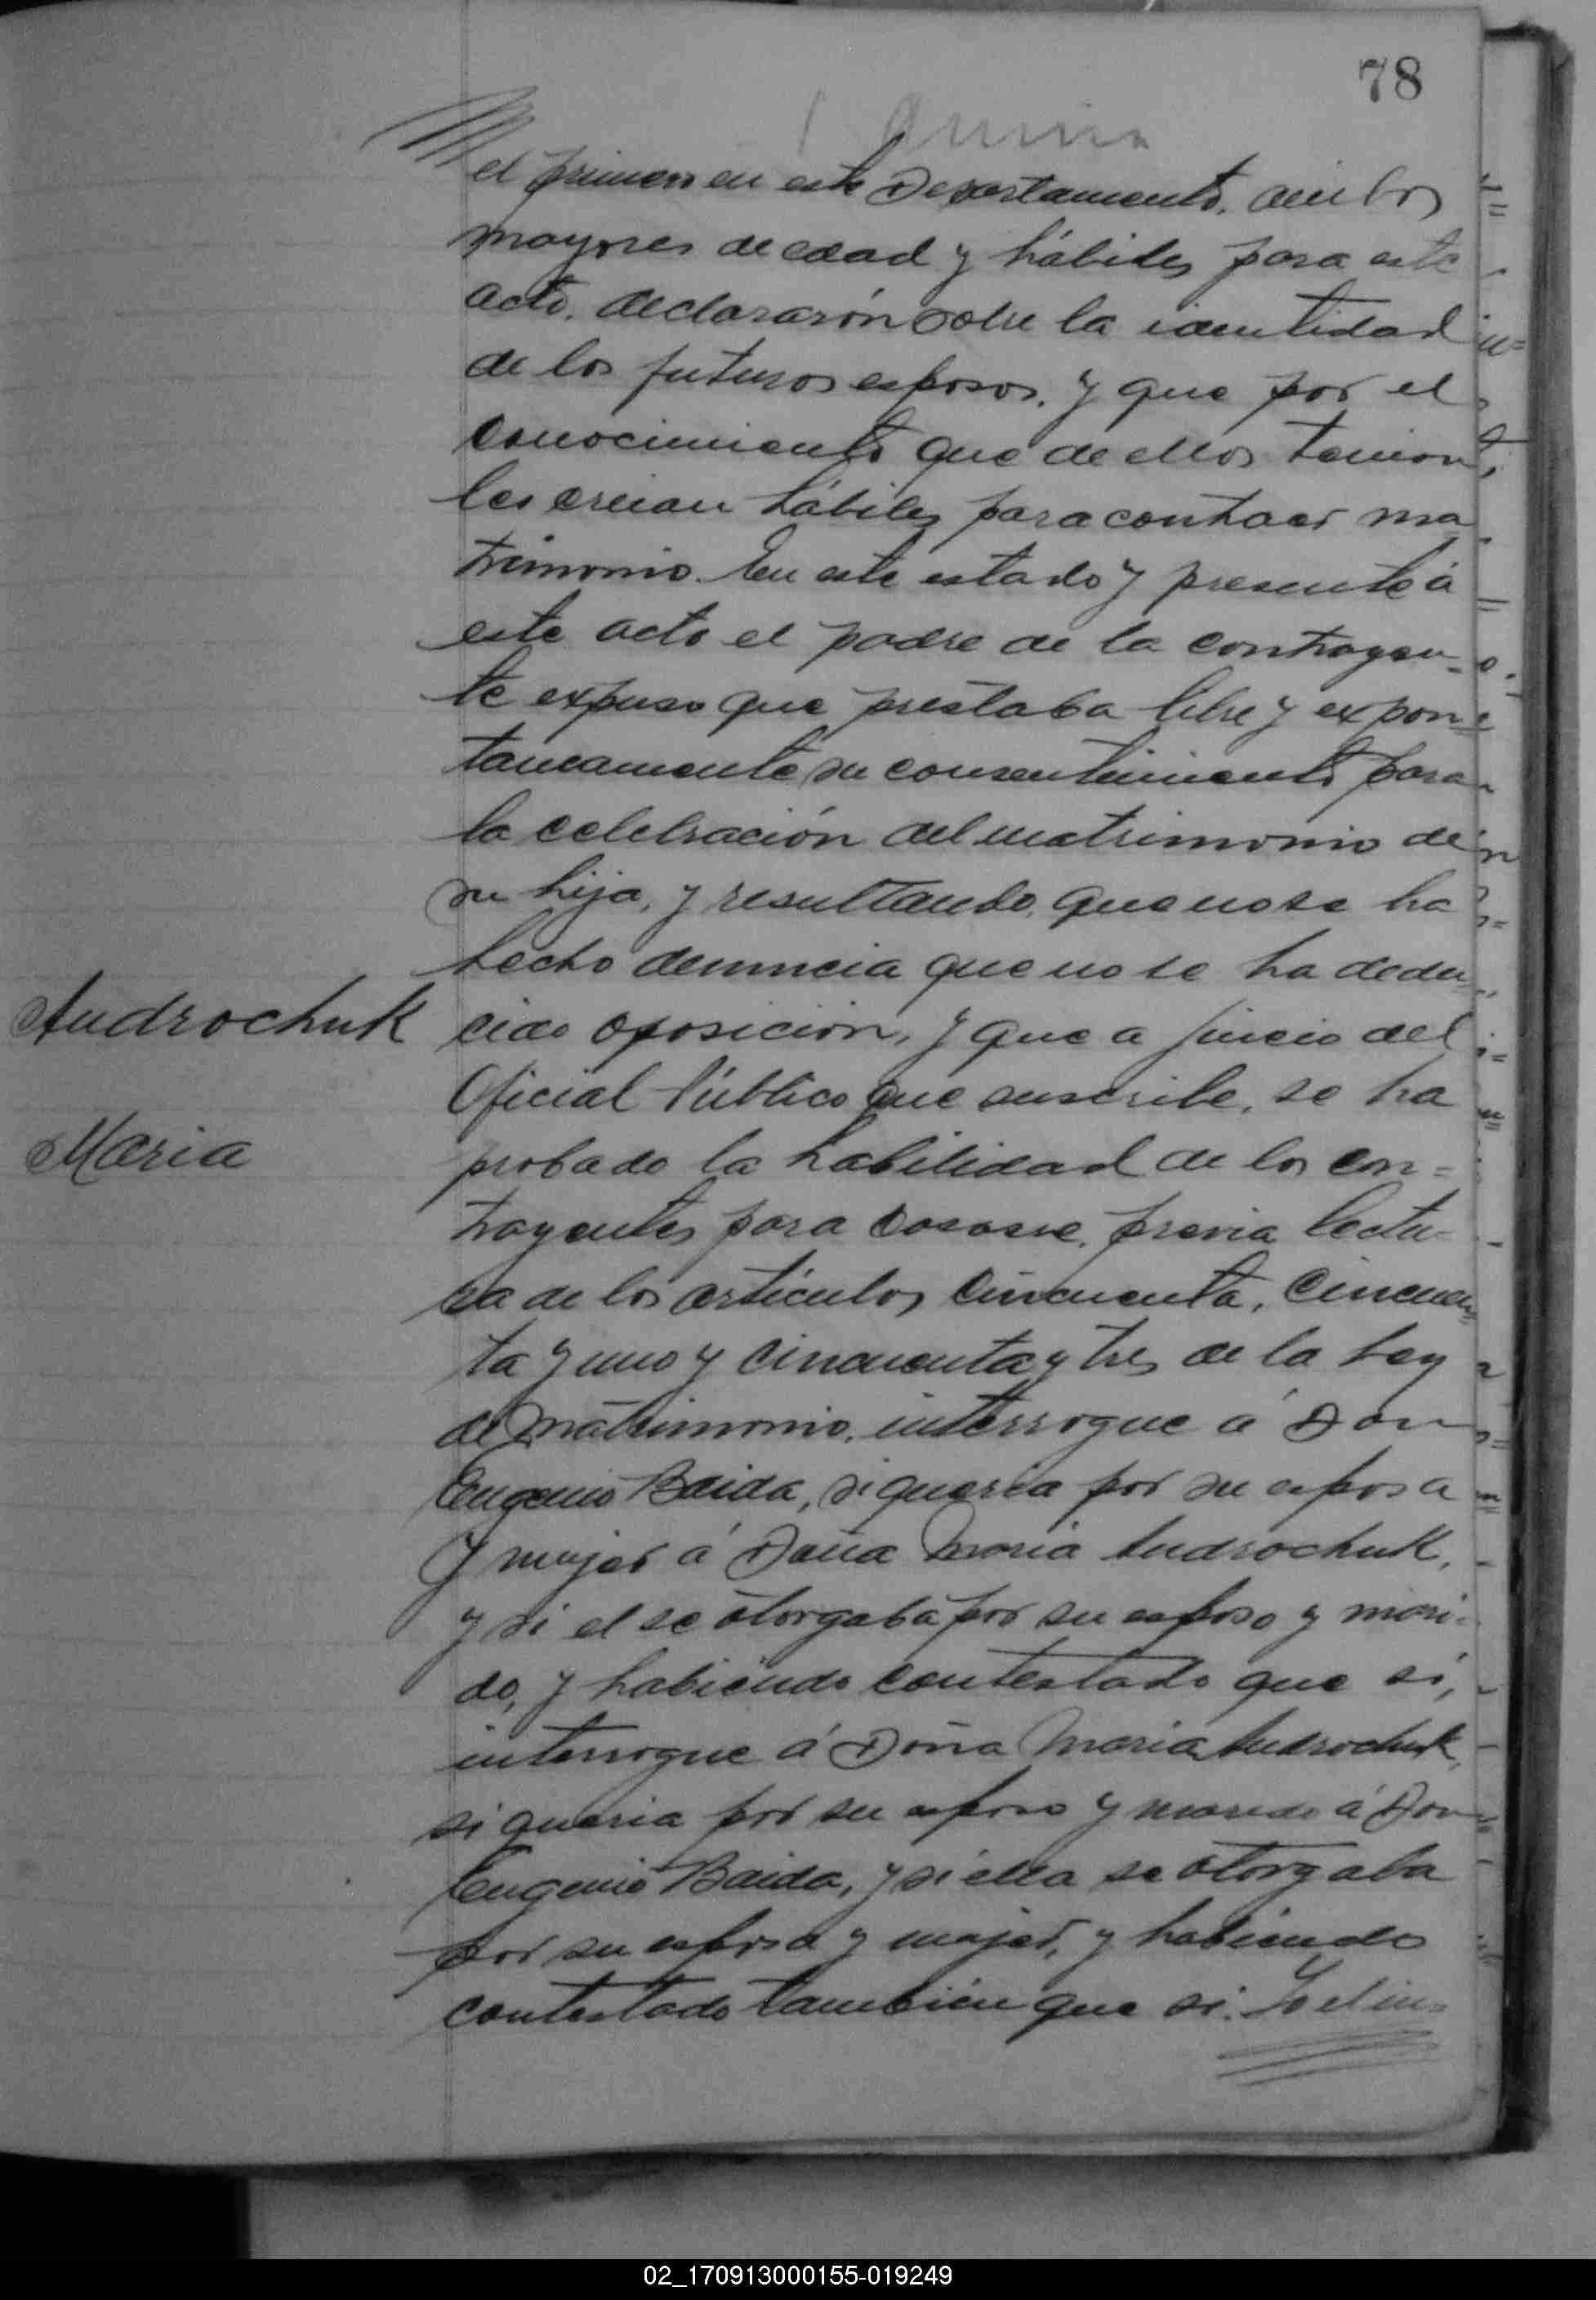 78
el primero en este Departamento, ambos
mayores de edad y hábiles para este
acto, declararón sobre la identidad
de los futuros esposos, y que por el
conocimiento que de ellos tenian,
les creian hábiles para contraer ma
trimonio. En este estado y presente á
este acto el padre de la contrayen-
te expuso que prestaba libre y expon-
taneamente su consentimiento para
la celebración del matrimonio de
su hija, y resultando, que no se ha
hecho denuncia que no se ha dedu
Androchuk
cido oposición, y que a juicio del
Oficial Público que suscribe, se ha
Maria
probado la habilidad de los con=
trayentes para casarse, previa lectu-
ra de los artículos cincuenta, cincuen
ta y uno y cincuenta y tres de la Ley
de Matrimonio, interrogue á Don
Eugenio Baida, si queria por su esposa
y mujer á Doña Maria Androchuk,
y si el se otorgaba por su esposo y mari-
do, y habiendo contestado que si,
interrogue á Doña Maria Androchuk,
si queria por su esposo y marido á Don
Eugenio Baida, y si ella se otorgaba
por su esposa y mujer, y habiendo
contestado también que si. Yo el in=
02_170913000155-019249